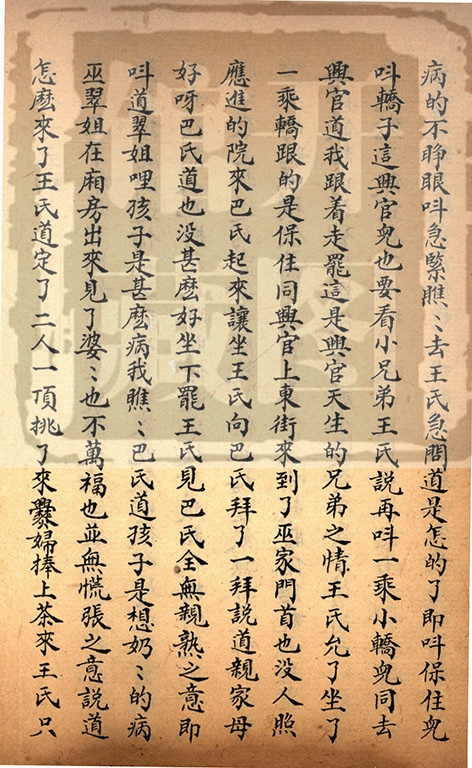 病的不睁眼呌急緊瞧〻去王氏急問道是怎的了即呌保住兒
呌轎子這興官兒也要看小兄弟王氏說再呌一乘小轎兒同去
興官道我跟着走罷這是興官天生的兄弟之情王氏允了坐了
一乘轎跟的是保住同興官上東街來到了巫家門首也没人照
應進的院來巴氏起來讓坐王氏向巴氏拜了一拜說道親家母
好呀巴氏道也没甚麽好坐下罷王氏見巴氏全無親熟之意即
呌道翠姐哩孩子是甚麽病我瞧〻巴氏道孩子是想奶〻的病
巫翠姐在廂房出來見了婆〻也不萬福也並無慌張之意說道
怎麽來了王氏道定了二人一頂挑了來爨婦捧上茶來王氏只